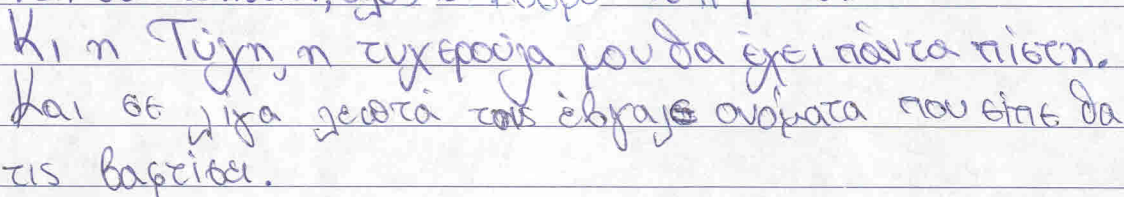 Κι η Τύχη, η τυχερούλα μου θα έχει πάντα πίστη.
Και σε λίγα λεπτά τους έβγαλε ονόματα που είπε θα
τις βαφτίσει.